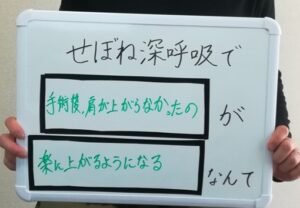 せぼね深呼吸で
手術後、肩が上がらなかったの
が
楽に上がるようになる
なんて